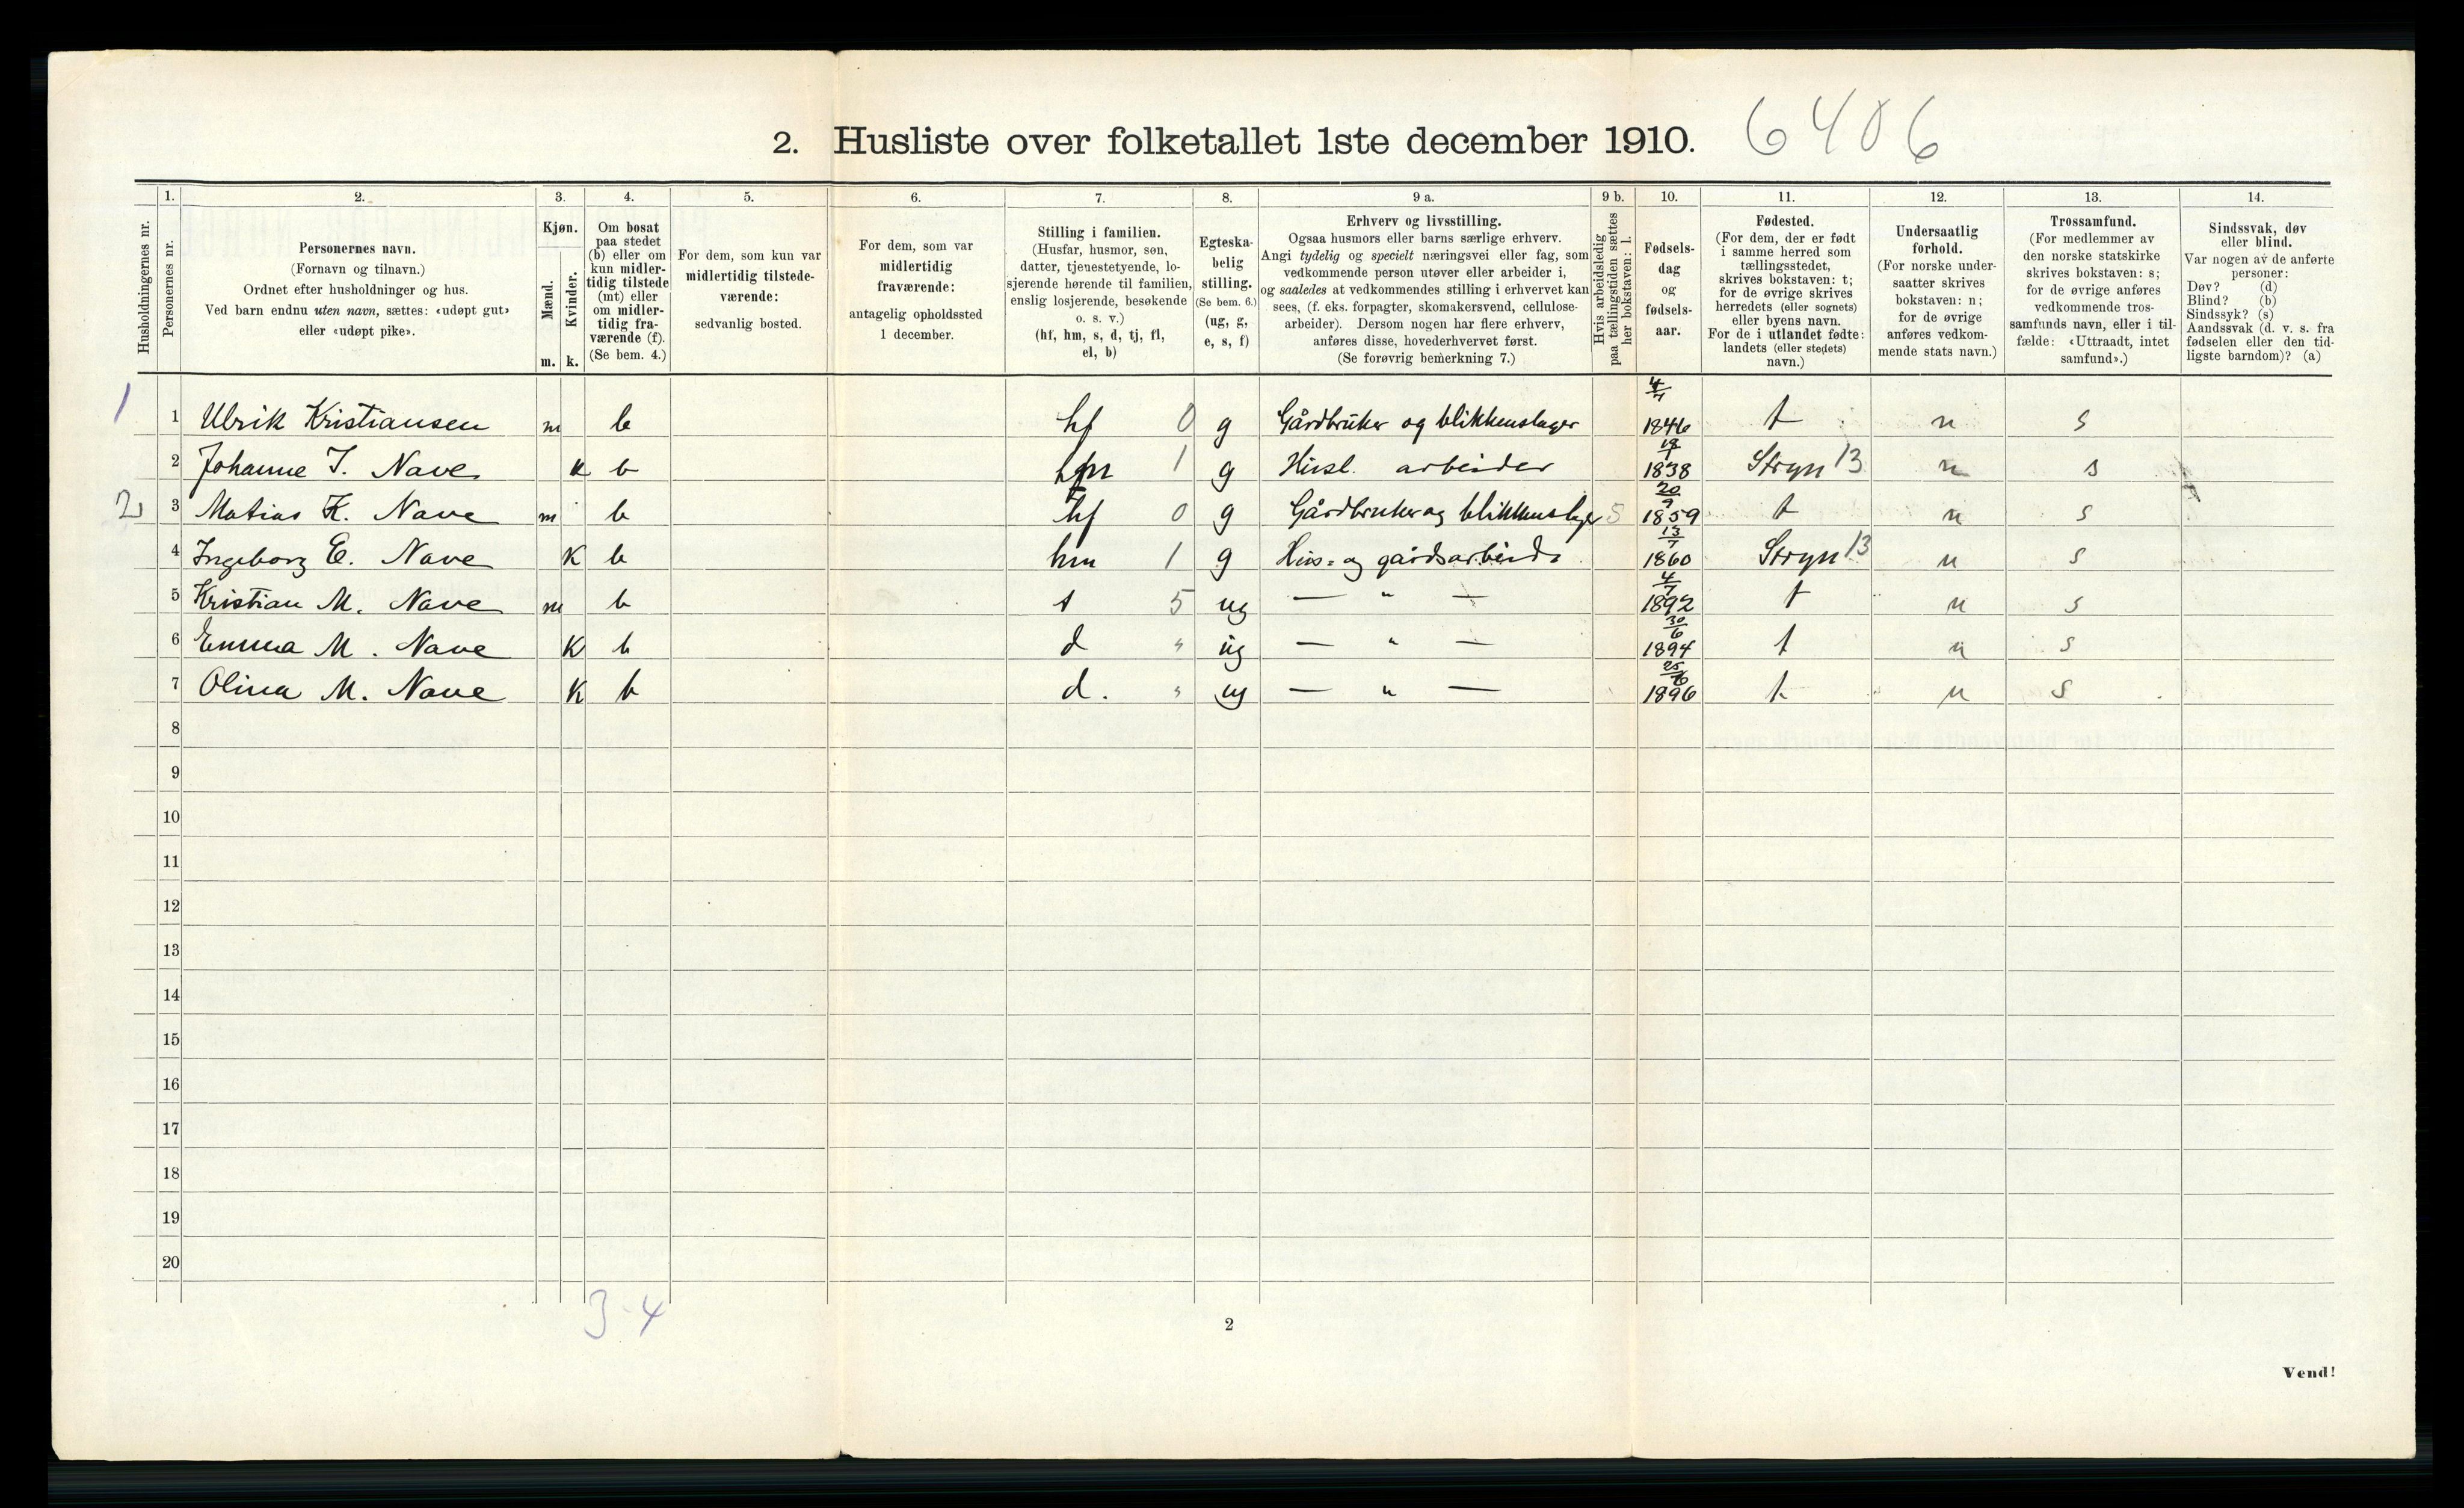 2. Husliste over folketallet 1ste december 1910. 6406
Husholdningernes nr.
1. Personernes nr.
2. Personernes navn. (Fornavn og tilnavn.) Ordnet efter husholdninger og hus. Ved barn endnu uten navn, sættes: «udøpt gut» eller «udøpt pike».
3. Kjøn. Mænd. m. Kvinder. k.
4. Om bosat paa stedet (b) eller om kun midlertidig tilstede (mt) eller om midlertidig fraværende (f). (Se bem. 4.)
5. For dem, som kun var midlertidig tilstedeværende: sedvanlig bosted.
6. For dem, som var midlertidig fraværende: antagelig opholdssted 1 december.
7. Stilling i familien. (Husfar, husmor, søn, datter, tjenestetyende, losjerende hørende til familien, enslig losjerende, besøkende o. s. v.) (hf, hm, s, d, tj, fl, el, b)
8. Egteskabelig stilling. (Se bem. 6.) (ug, g, e, s, f)
9 a. Erhverv og livsstilling. Ogsaa husmors eller barns særlige erhverv. Angi tydelig og specielt næringsvei eller fag, som vedkommende person utøver eller arbeider i, og saaledes at vedkommendes stilling i erhvervet kan sees, (f. eks. forpagter, skomakersvend, cellulosearbeider). Dersom nogen har flere erhverv, anføres disse, hovederhvervet først. (Se forøvrig bemerkning 7.)
9 b. Hvis arbeidsledig paa tællingstiden sættes her bokstaven: l.
10. Fødselsdag og fødselsaar.
11. Fødested. (For dem, der er født i samme herred som tællingsstedet, skrives bokstaven: t; for de øvrige skrives herredets (eller sognets) eller byens navn. For de i utlandet fødte: landets (eller stedets) navn.)
12. Undersaatlig forhold. (For norske undersaatter skrives bokstaven: n; for de øvrige anføres vedkommende stats navn.)
13. Trossamfund. (For medlemmer av den norske statskirke skrives bokstaven: s; for de øvrige anføres vedkommende trossamfunds navn, eller i tilfælde: «Uttraadt, intet samfund».)
14. Sindssvak, døv eller blind. Var nogen av de anførte personer: Døv? (d) Blind? (b) Sindssyk? (s) Aandssvak (d. v. s. fra fødselen eller den tidligste barndom)? (a)
1 1 Ulrik Kristiansen m b hf 0 g Gårdbruker og blikkenslager 4/7 1846 t n s
2 Johanne J. Nave k b hm 1 g Husl. arbeider 1838 Stryn 13 n s
2 3 Matias K. Nave m b hf 0 g Gårdbruker og blikkenslager 5 20/9 1859 t n s
4 Ingeborg E. Nave K b hm 1 g Hus- og gårdsarbeide 13/7 1860 Stryn 13 n s
5 Kristian M. Nave m b s 5 ug — " — 4/7 1892 t n s
6 Emma M. Nave K b d " ug — " — 30/6 1894 t n s
7 Olina M. Nave K b d. " ug — " — 25/6 1896 t n s
8
9
10
11
12
13
14
15
16
17
18
19
20
3-4
2
Vend!